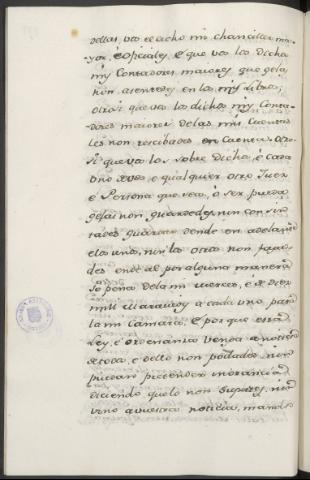 dellas, vos el dicho mi chanciller ma-
yor é oficiales, é que vos los dichos
mis Contadores maiores que gela
non asentedes en los mis libros;
otrosi que vos los dichos mis Conta-
dores maiores de las mis Cuentas
les non rescibades en Cuenta, otro-
si que vos los sobre dichos, é cada
uno de vos é qualquier otro Juez
é Persona que sea, ó ser pueda
gela non guardedes, nin consin-
tades guardar dende en adelante
é los unos, nin los otros non faga-
des ende al por alguna manera
so pena de la mi merced, é de diez
mill maravedis a cada uno para
la mi Camara. E por que esta
Ley, é ordenanza venga a noticia
de todos, é dello non podades, nin
puedan pretender inorancia
diciendo que lo non supistes, nin
vino a vuestra noticia, mando